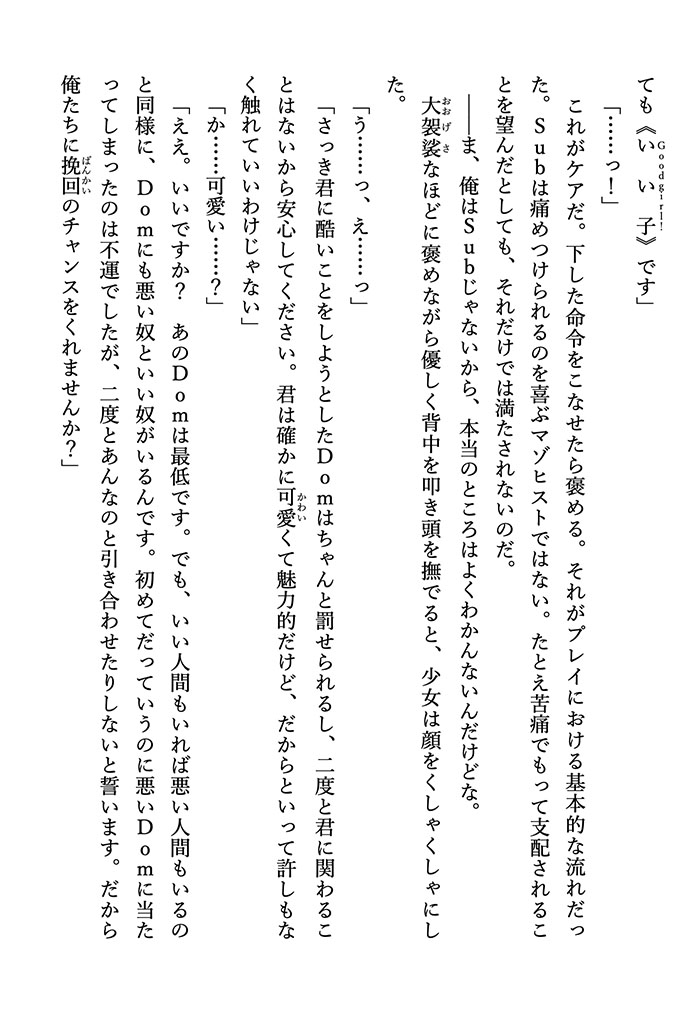 ても《いい子》です」
Good girl!
「……っ！」
これがケアだ。下した命令をこなせたら褒める。それがプレイにおける基本的な流れだっ
た。Subは痛めつけられるのを喜ぶマゾヒストではない。たとえ苦痛でもって支配されるこ
とを望んだとしても、それだけでは満たされないのだ。
――ま、俺はSubじゃないから、本当のところはよくわかんないんだけどな。
大袈裟なほどに褒めながら優しく背中を叩き頭を撫でると、少女は顔をくしゃくしゃにし
おおげさ
た。
「う……っ、え……っ」
「さっき君に酷いことをしようとしたDomはちゃんと罰せられるし、二度と君に関わるこ
とはないから安心してください。君は確かに可愛くて魅力的だけど、だからといって許しもな
かわい
く触れていいわけじゃない」
「か……可愛い……？」
「ええ。いいですか？　あのDomは最低です。でも、いい人間もいれば悪い人間もいるの
と同様に、Domにも悪い奴といい奴がいるんです。初めてだっていうのに悪いDomに当た
ってしまったのは不運でしたが、二度とあんなのと引き合わせたりしないと誓います。だから
俺たちに挽回のチャンスをくれませんか？」
ばんかい